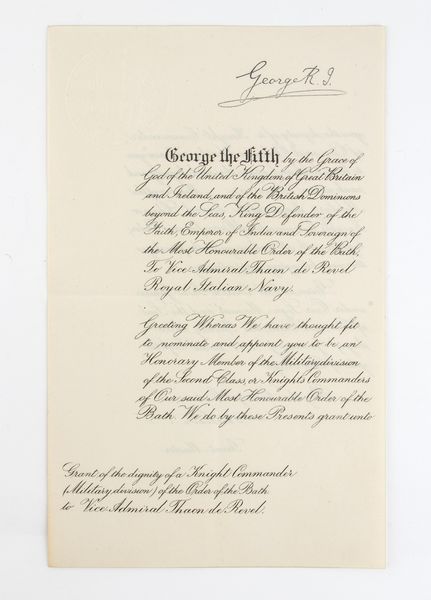 George R. I.
George the Fifth by the Grace of
God of the United Kingdom of Great Britain
and Ireland, and of the British Dominions
beyond the Seas, King Defender of the
Faith, Emperor of India and Sovereign of
the Most Honourable Order of the Bath,
To Vice Admiral Thaon de Revel
Royal Italian Navy.
Greeting Whereas We have thought fit
to nominate and appoint you to be an
Honorary Member of the Military division
of the Second Class, or Knights Commanders
of Our said Most Honourable Order of the
Bath. We do by these Presents grant unto
Grant of the dignity of a Knight Commander
(Military division) of the Order of the Bath
to Vice Admiral Thaon de Revel.